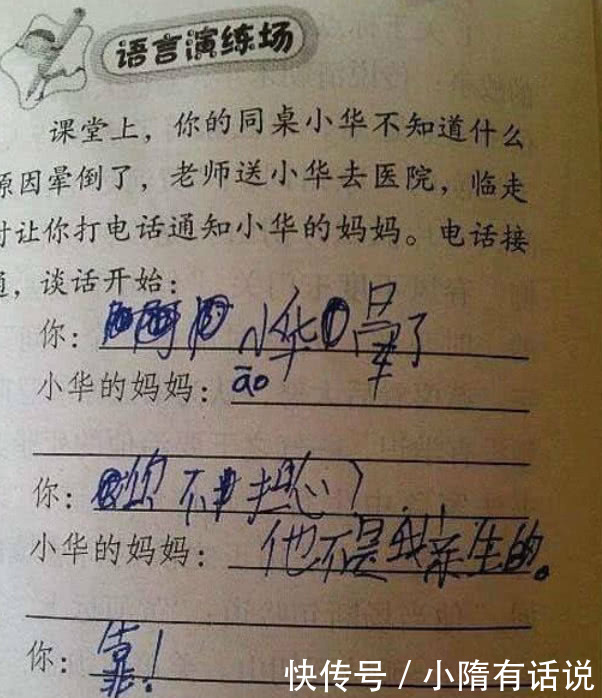 语言演练场
课堂上，你的同桌小华不知道什么
原因晕倒了，老师送小华去医院，临走
时让你打电话通知小华的妈妈。电话接
通，谈话开始：
你：小华晕了
小华的妈妈：āo
你：你不担心？
小华的妈妈：他不是我亲生的。
你：靠！
快传号 / 小隋有话说